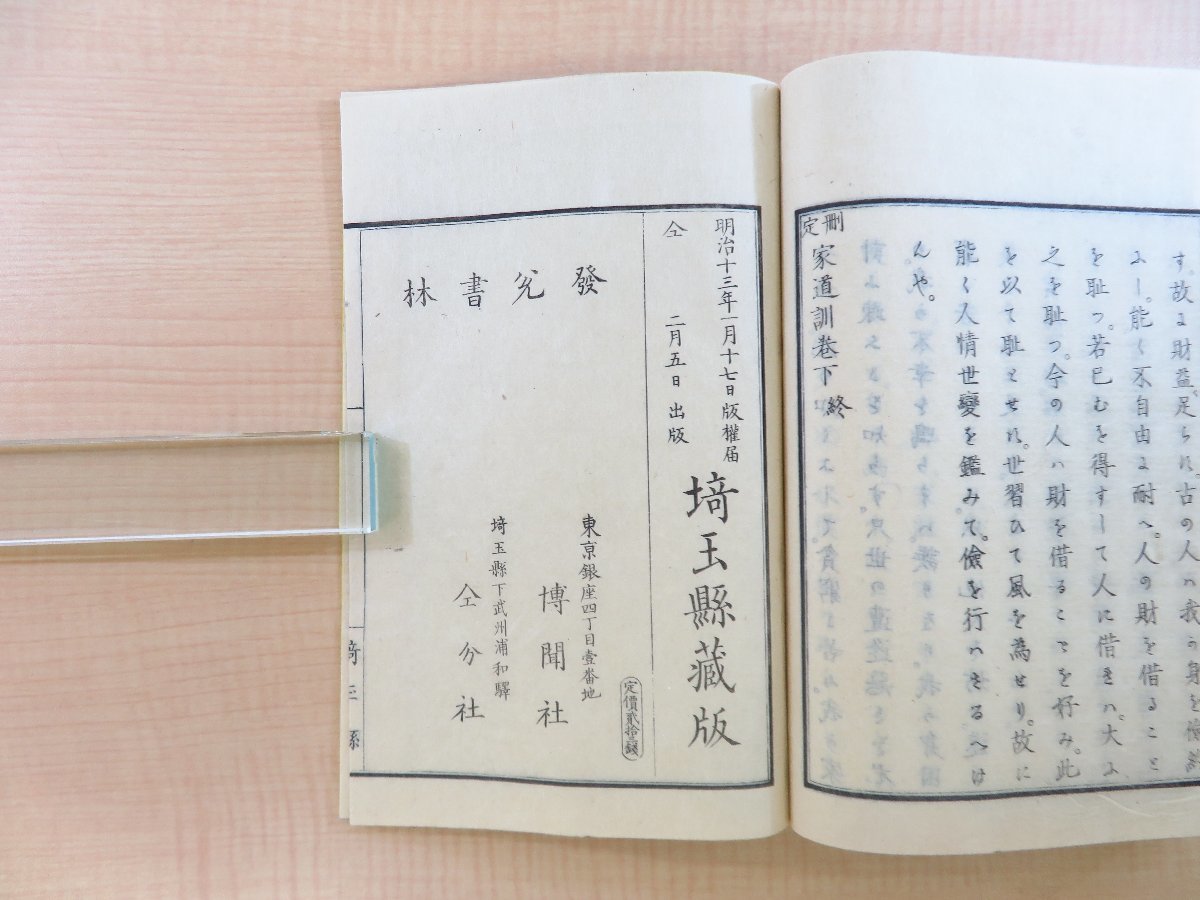 す。故よ財益足らに。古の人ハ我の身を儉約
よし。能く不自由よ耐へ。人の財を借ること
を恥つ。若已むを得すして人に借きハ。大よ
之を恥つ。今の人ハ財を借ることを好み。此
を以て恥とせに。世習ひて風を為せり。故に
能く人情世變を鑑みて。儉を行ハさるへけ
んや。
刪定家道訓卷下 終
明治十三年一月十七日版權届
仝 二月五日 出版
埼玉縣藏版
定價貳拾三錢
發兌書林
東京銀座四丁目壹番地
博聞社
埼玉縣下武州浦和驛
仝分社
埼玉縣